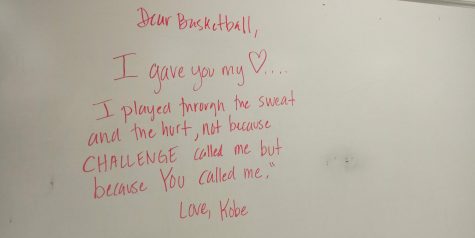 Dear Basketball,
I gave you my ♡....
I played through the sweat
and the hurt, not because
CHALLENGE called me but
because YOU called me."
Love, Kobe